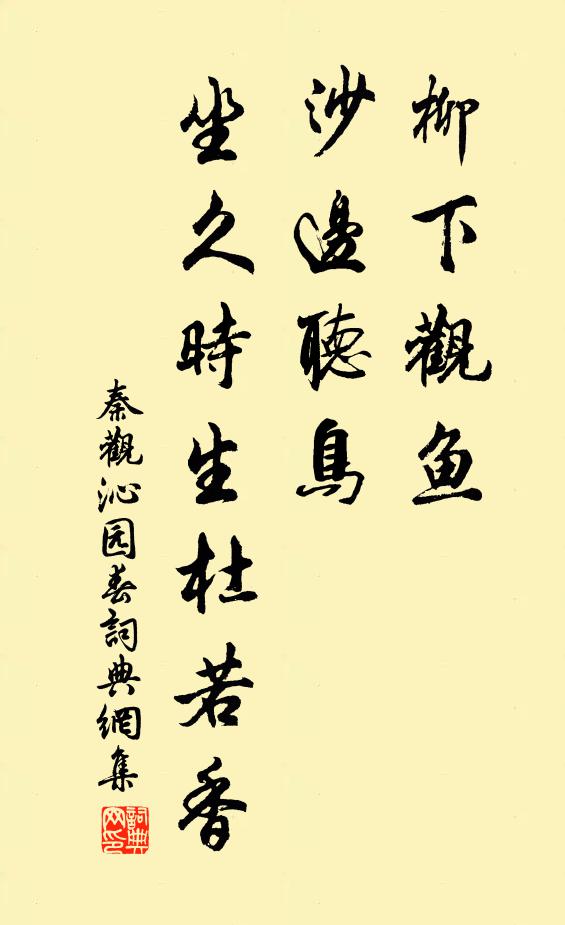 柳下觀魚
沙邊聽鳥
坐久時生杜若香
秦觀沁园春詞典網集
詞典网印